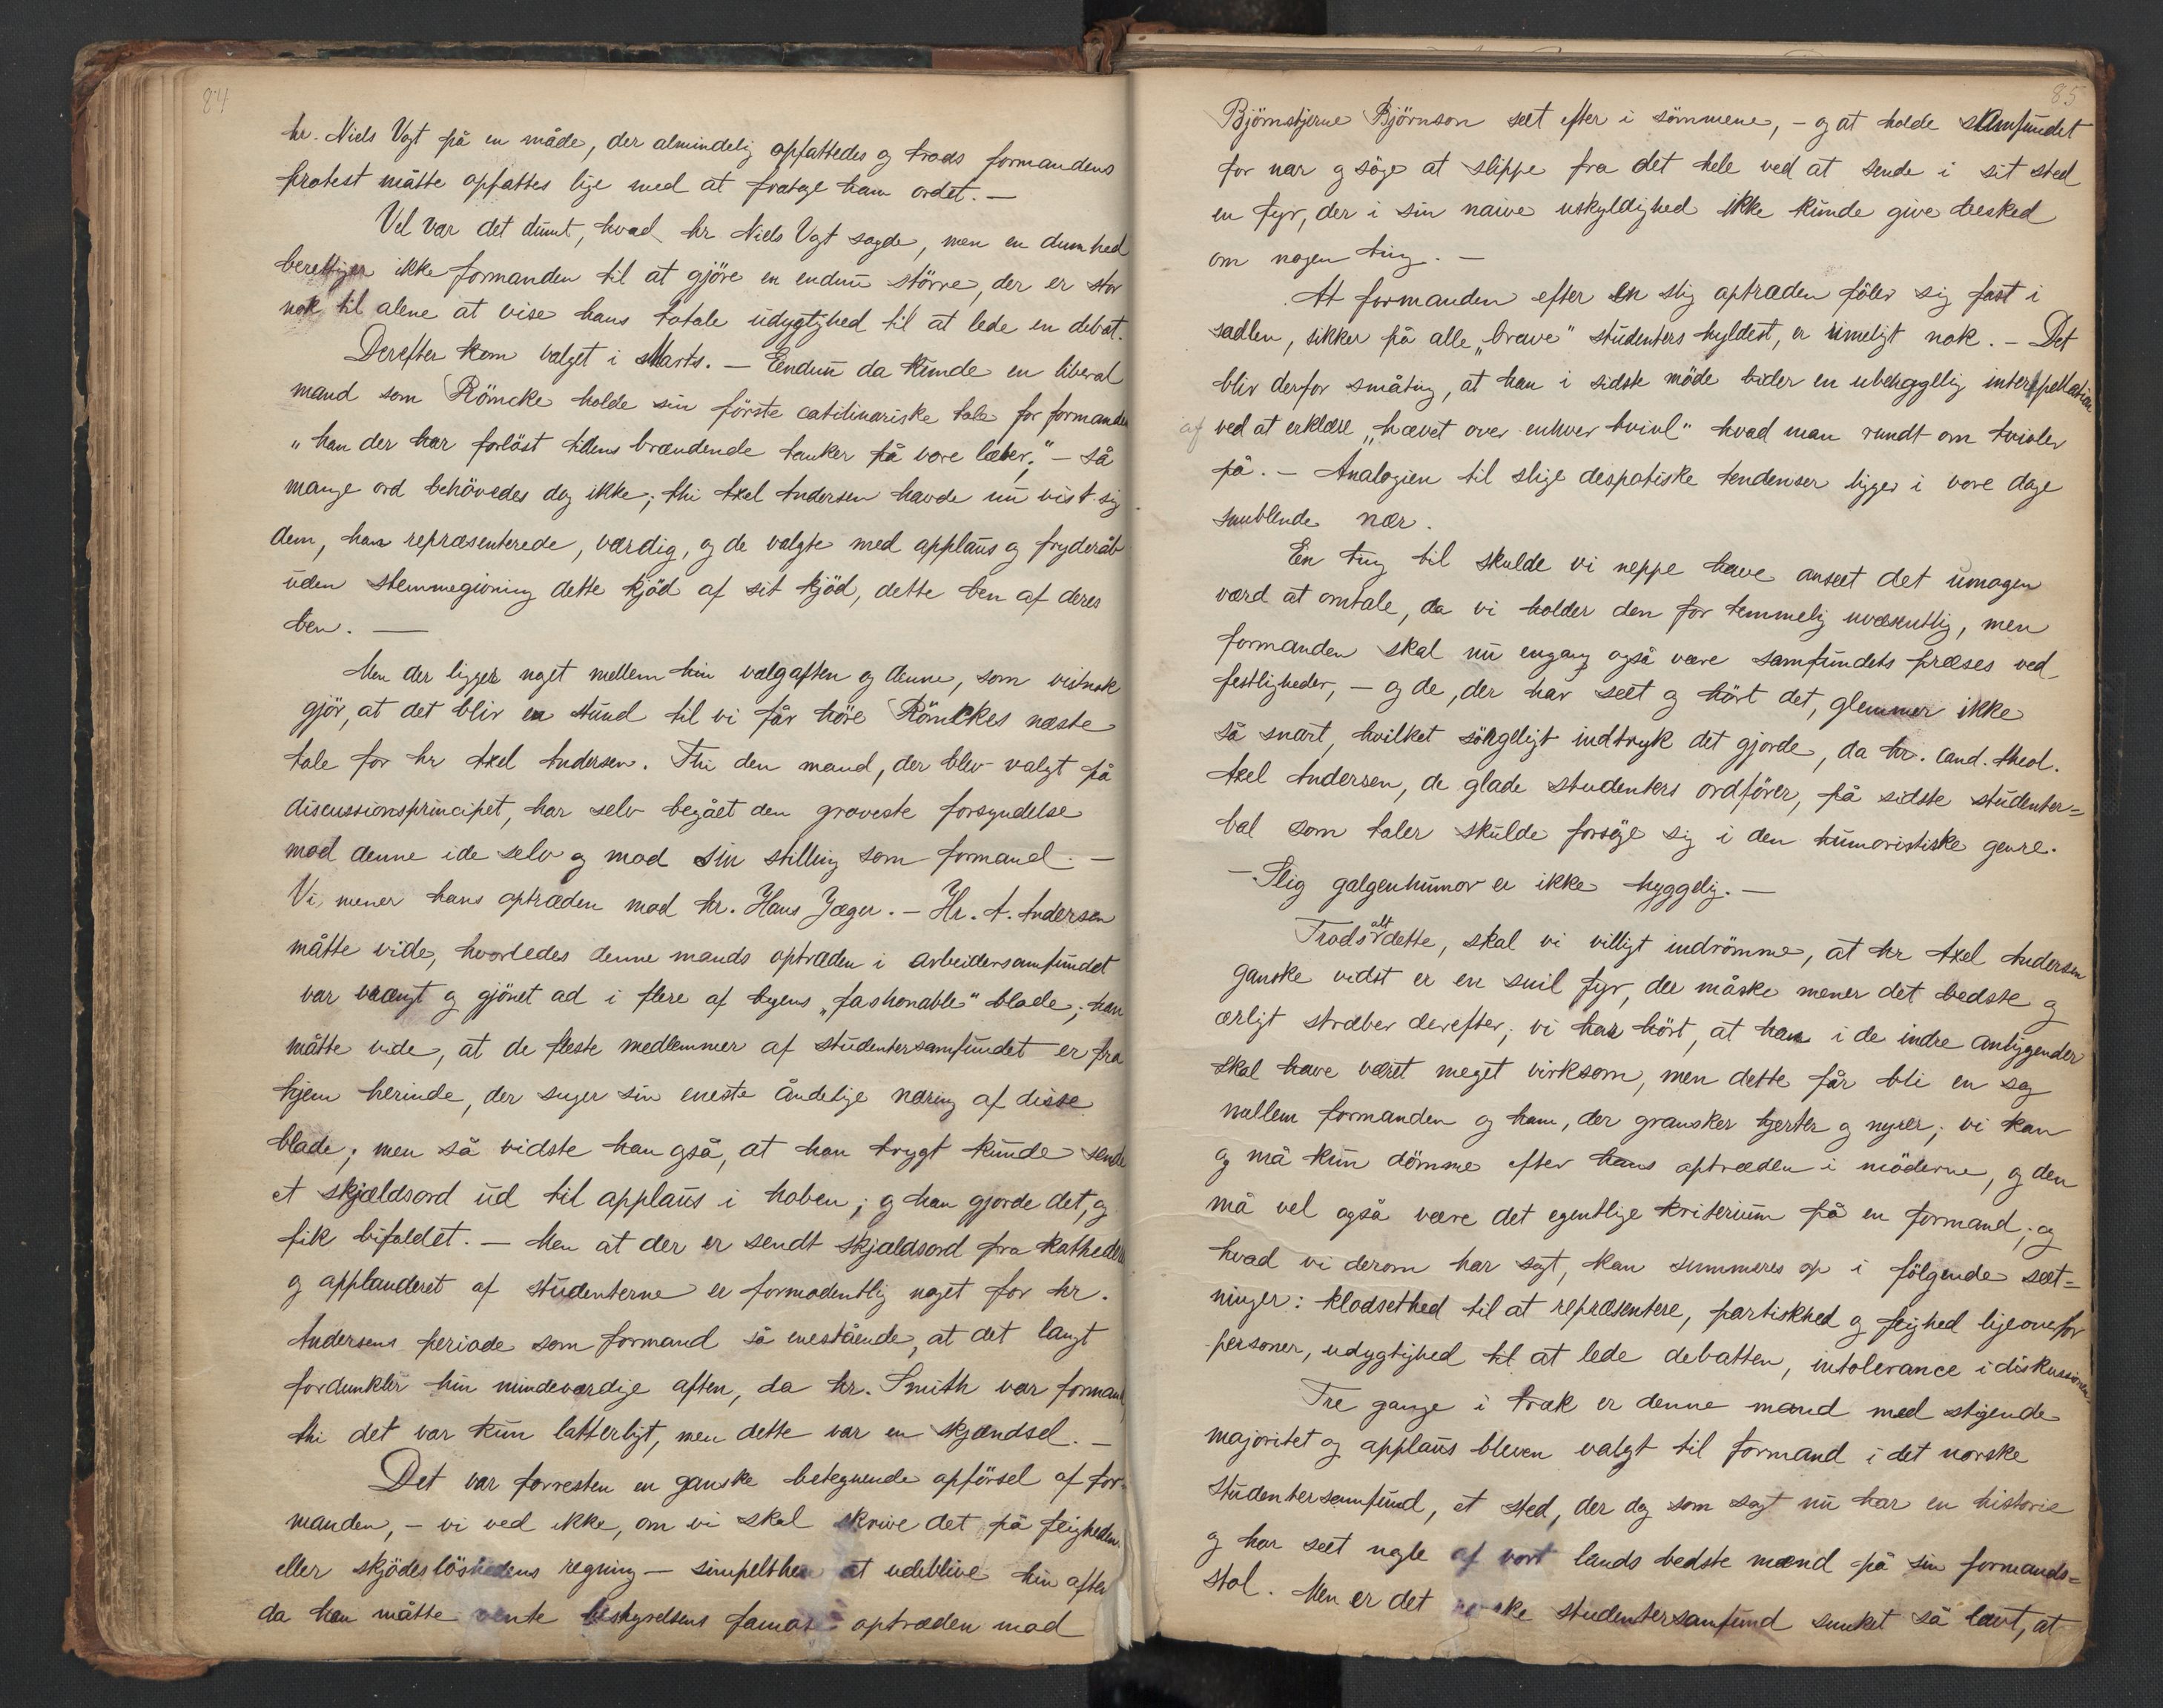 84
hr. Niels Vogt på en måde, der almindelig opfattedes og trods formandens
protest måtte opfattes lige med at fratage ham ordet. —
Vel var det dumt, hvad hr Niels Vogt sagde, men en dumhed
berettiger ikke formanden til at gjöre en endnu större, der er stor
nok til alene at vise hans totale udygtighed til at lede en debat.
Derefter kom valget i Marts. — Eendnu da kunde en liberal
mand som Römcke holde sin förste catilinariske tale for formanden
"han der har forlöst tidens brændende tanker på vore læber," — så
mange ord behövedes dog ikke; thi Axel Andersen havde nu vist sig
dem, han repræsenterede, værdig, og de valgte med applaus og fryderåb
uden stemmegivning dette kjöd af sit kjöd, dette ben af deres
ben. —
Men der ligger noget mellem hin valgaften og denne, som vistnok
gjör, at det blir en stund til vi får höre Römckes næste
tale for hr Axel Andersen. Thi den mand, der blev valgt på
discussionsprincipet, har selv begået den groveste forsyndelse
mod denne ide selv og mod sin stilling som formand. —
Vi mener hans optræden mod hr. Hans Jæger. — Hr. A. Andersen
måtte vide, hvorledes denne mands optræden i arbeidersamfundet
var vrængt og gjönet ad i flere af byens „fashonable" blade; han
måtte vide, at de fleste medlemmer af studentersamfundet er fra
hjem herinde, der suger sin eneste åndelige næring af disse
blade; men så vidste han også, at han trygt kunde sende
et skjældsord ud til applaus i hoben; og han gjorde det, og
fik bifaldet. — Men at der er sendt skjældsord fra kathedere
og applauderet af studenterne er formodentlig noget for hr.
Andersens periode som formand så enestående, at det langt
fordunkler hin mindeværdige aften, da hr. Smith var formand,
thi det var kun latterligt, men dette var en skjændsel. —
Det var forresten en ganske betegnende opförsel af for-
manden, — vi ved ikke, om vi skal skrive det på feighedens
eller skjödeslöshedens regning — simpelthen at udeblive hin aften
da han måtte vente bestyrelsens famøse optræden mod
85
Björnstjerne Björnson seet efter i sömmene, — og at holde samfundet
for nar og söge at slippe fra det hele ved at sende i sit sted
en fyr, der i sin naive uskyldighed ikke kunde give besked
om nogen ting. —
At formanden efter en slig optræden föler sig fast i
sadlen, sikker på alle „brave" studenters hyldest, er rimeligt nok. — Det
blir derfor småting, at han i sidste möde bider en ubehagelig interpellation
af ved at erklære „hævet over enhver tvivl" hvad man rundt om tvivler
på. — Analogien til slige despotiske tendenser ligger i vore dage
snublende nær.
En ting til skulde vi neppe have anseet det umagen
værd at omtale, da vi holder den for temmelig uvæsentlig, men
formanden skal nu engang også være samfundets præses ved
festligheder, — og de, der har seet og hört det, glemmer ikke
så snart, hvilket sörgeligt indtryk det gjorde, da hr. cand. theol.
Axel Andersen, de glade studenters ordförer, på sidste studenter=
bal som taler skulde forsöge sig i den humoristiske genre.
— Slig galgenhumor er ikke hyggelig. —
Trods alt dette, skal vi villigt indrömme, at hr Axel Andersen
ganske vidst er en snil fyr, der måske mener det bedste og
ærligt stræber derefter; vi har hört, at han i de indre anliggender
skal have været meget virksom, men dette får bli en sag
mellem formanden og ham, der gransker hjerter og nyrer; vi kan
og må kun dömme efter hans optræden i möderne, og den
må vel også være det egentlige kriterium på en formand; og
hvad vi derom har sagt, kan summeres op i fölgende sæt=
ninger: klodsethed til at repræsentere, partiskhed og feighed ligeoverfor
personer, udygtighed til at lede debatten, intolerance i diskussionen.
Tre gange i træk er denne mand med stigende
majoritet og applaus bleven valgt til formand i det norske
studentersamfund, et sted, der dog som sagt nu har en historie
og har seet nogle af vort lands bedste mænd på sin formands=
stol. Men er det norske studentersamfund sunket så lavt, at